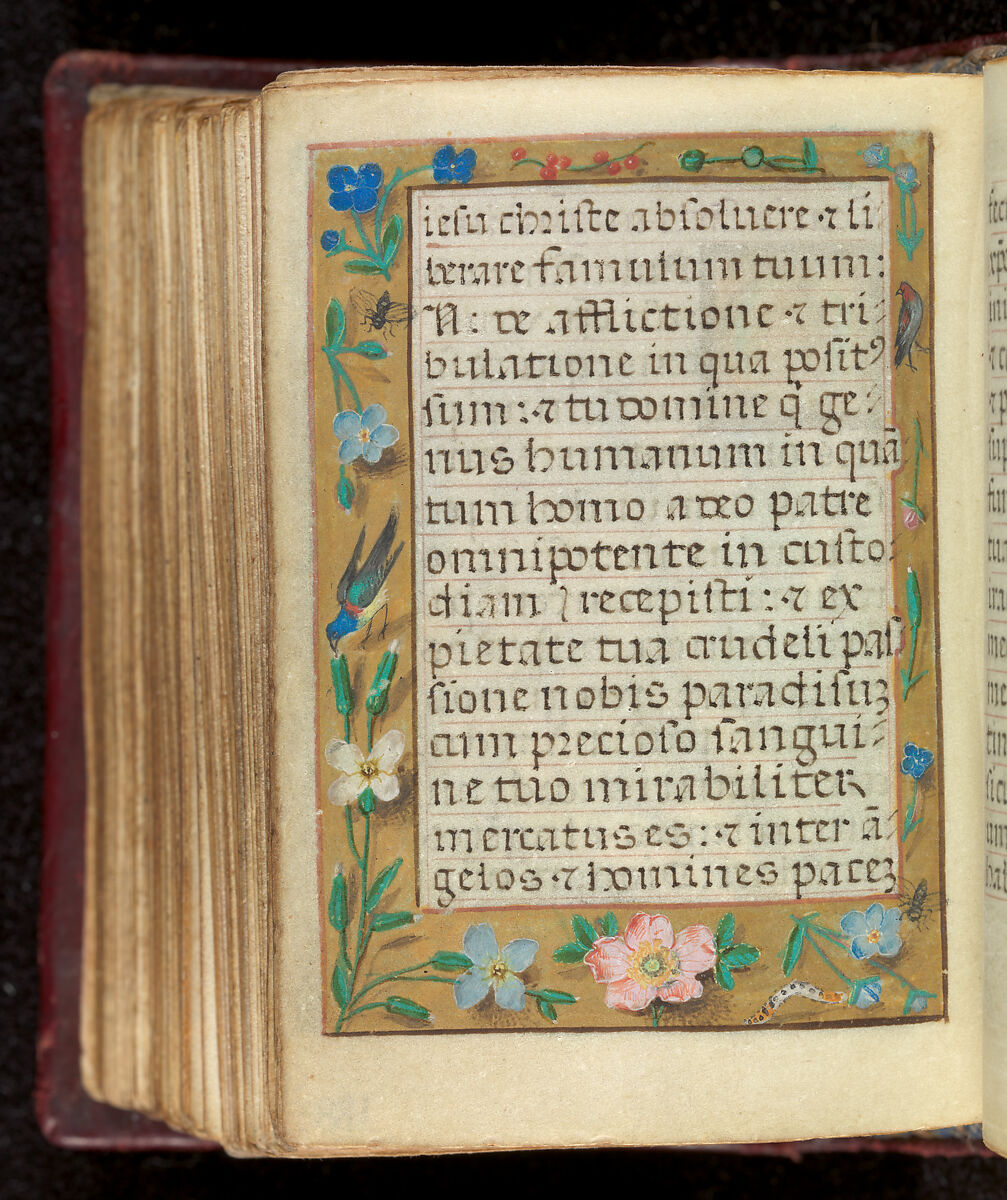 iesu christe absoluere ⁊ li
berare famulum tuum:
N: de afflictione ⁊ tri
bulatione in qua positꝰ
sum: ⁊ tu domine q̇ ge
nus humanum in quā
tum homo a deo patre
omnipotente in custo
diam recepisti: ⁊ ex
pietate tua crudeli pas
sione nobis paradisuʒ
cum precioso sangui
ne tuo mirabiliter
mercatus es: ⁊ inter ā
gelos ⁊ homines paceʒ